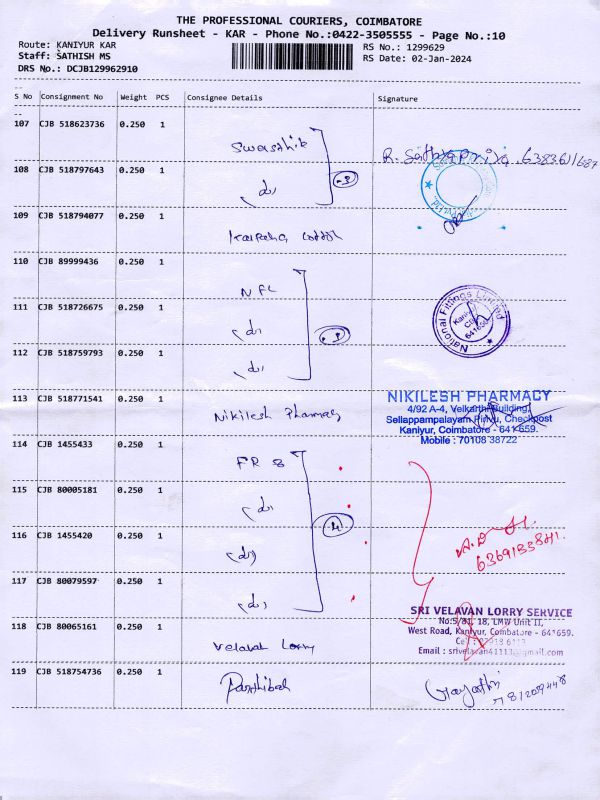 THE PROFESSIONAL COURIERS, COIMBATORE
Delivery Runsheet - KAR - Phone No.:0422-3505555 - Page No.:10
Route: KANIYUR KAR
RS No.: 1299629
Staff: SATHISH MS
RS Date: 02-Jan-2024
DRS No.: DCJB129962910
S No Consignment No Weight PCS Consignee Details Signature
107 CJB 518623736 0.250 1
Swasthik
R. Sathyapriya
108 CJB 518797643 0.250 1
109 CJB 518794077 0.250 1
110 CJB 89999436 0.250 1
NFL
111 CJB 518726675 0.250 1
National Fittings Limited
Kaniyur
CBE
641659
112 CJB 518759793 0.250 1
113 CJB 518771541 0.250 1
Nikilesh Pharmacy
NIKILESH PHARMACY
4/92 A-4, Velkarthi Building,
Sellappampalayam Pirivu, Checkpost
Kaniyur, Coimbatore - 641 659.
Mobile : 70108 38722
114 CJB 1455433 0.250 1
FR 8
115 CJB 80005181 0.250 1
4
116 CJB 1455420 0.250 1
117 CJB 80079597 0.250 1
118 CJB 80065161 0.250 1
Velavan Lorry
SRI VELAVAN LORRY SERVICE
No:5/81, 18, LMW Unit II,
West Road, Kaniyur, Coimbatore - 641659.
Email : srivelavan41111@gmail.com
119 CJB 518754736 0.250 1
Parthiban
Gayathri